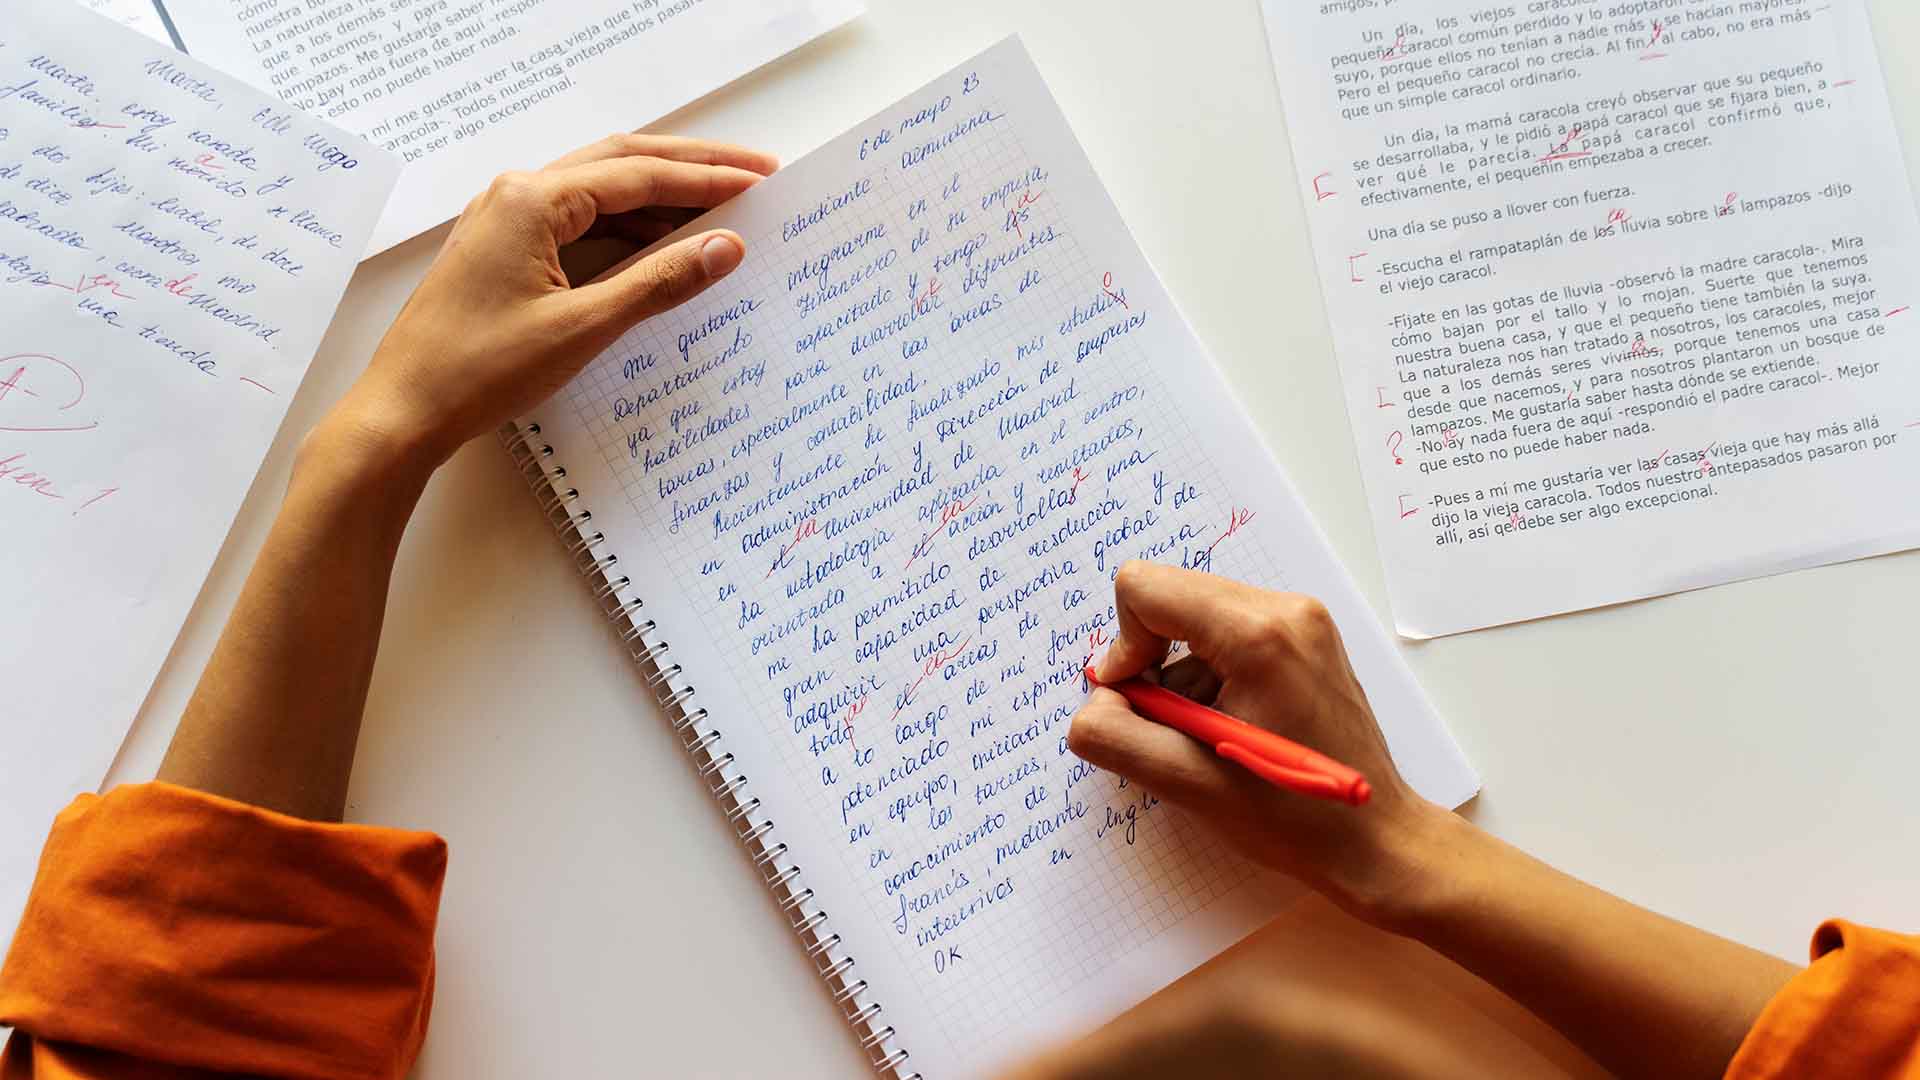 Marta, 6 de mayo
Marta. estoy casada y
familia. Mi marido se llama
a
dos hijos: Isabel, de doce
de diez Nosotros vivo
cerca de Madrid.
en una tienda
A-
¡Bien!
cómo
nuestra
La naturaleza
que a los demás
que nacemos, y para
lampazos. Me gustaría saber
-No hay nada fuera de aquí -respon
esto no puede haber nada.
a mí me gustaría ver la casa vieja que hay
caracola-. Todos nuestros antepasados pasar
be ser algo excepcional.
6 de mayo 23
Estudiante: Almudena
Me gustaría integrarme en el
Departamento Financiero de su empresa,
ya que estoy capacitado y tengo los
a
habilidades para desarrollar diferentes
e
tareas, especialmente en las áreas de
finanzas y contabilidad.
Recientemente he finalizado mis estudios
o
en administración y Dirección de empresas
en el Universidad de Madrid
la
La metodología aplicada en el centro,
orientada a el acción y resultados,
la
me ha permitido desarrollar una
r
gran capacidad de resolución y
adquirir una perspectiva global de
todo el areas de la empresa.
as
la
a lo largo de mi formac haj
he
potenciado mi espíritu
u
en equipo, iniciativa
en las tareas, a
conocimiento de idi
francés, mediante e
intensivos en Ingl
OK
amigos, p
Un día, los viejos caracoles
pequeña caracol común perdido y lo adoptaron
suyo, porque ellos no tenían a nadie más y se hacían mayores.
Pero el pequeño caracol no crecía. Al fin y al cabo, no era más
que un simple caracol ordinario.
Un día, la mamá caracola creyó observar que su pequeño
se desarrollaba, y le pidió a papá caracol que se fijara bien, a
ver qué le parecía. La papá caracol confirmó que,
efectivamente, el pequeñín empezaba a crecer.
Una día se puso a llover con fuerza.
-Escucha el rampataplán de los lluvia sobre las lampazos -dijo
la
el viejo caracol.
-Fijate en las gotas de lluvia -observó la madre caracola-. Mira
cómo bajan por el tallo y lo mojan. Suerte que tenemos
nuestra buena casa, y que el pequeño tiene también la suya.
La naturaleza nos han tratado a nosotros, los caracoles, mejor
que a los demás seres vivimos, porque tenemos una casa
desde que nacemos, y para nosotros plantaron un bosque de
lampazos. Me gustaría saber hasta dónde se extiende.
?
-No ay nada fuera de aquí -respondió el padre caracol-. Mejor
que esto no puede haber nada.
-Pues a mí me gustaría ver las casas vieja que hay más allá
dijo la vieja caracola. Todos nuestro antepasados pasaron por
allí, así qe debe ser algo excepcional.